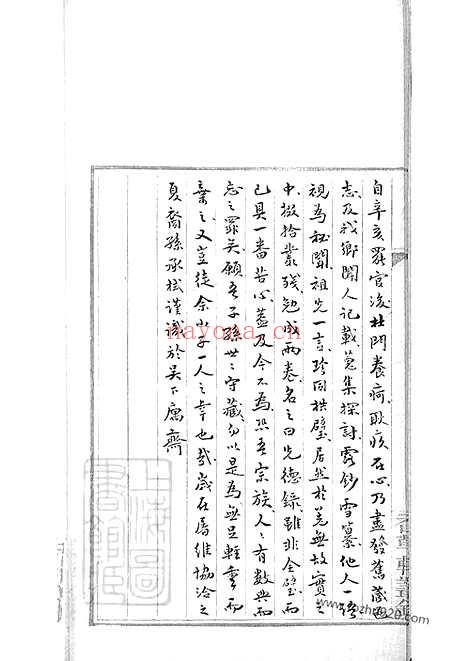 自辛亥罷官後杜門養疴耿疚在心乃盡發舊藏
志及我鄉聞人記載蒐集探討露鈔雪纂他人一路
視為秘聞祖先一言珍同拱璧居然於羌無故實之
中掇拾叢殘勉成兩卷名之曰先德錄雖非全璧而
已具一番苦心蓋及今不為恐吾宗族人人有數典而
忘之罪矣願吾子孫世世守藏勿以是為無足輕重而
棄之又豈徒余小子一人之幸也哉歲在屠維協洽之
夏裔孫承棫謹識於吳下寓齋
nayona.cn